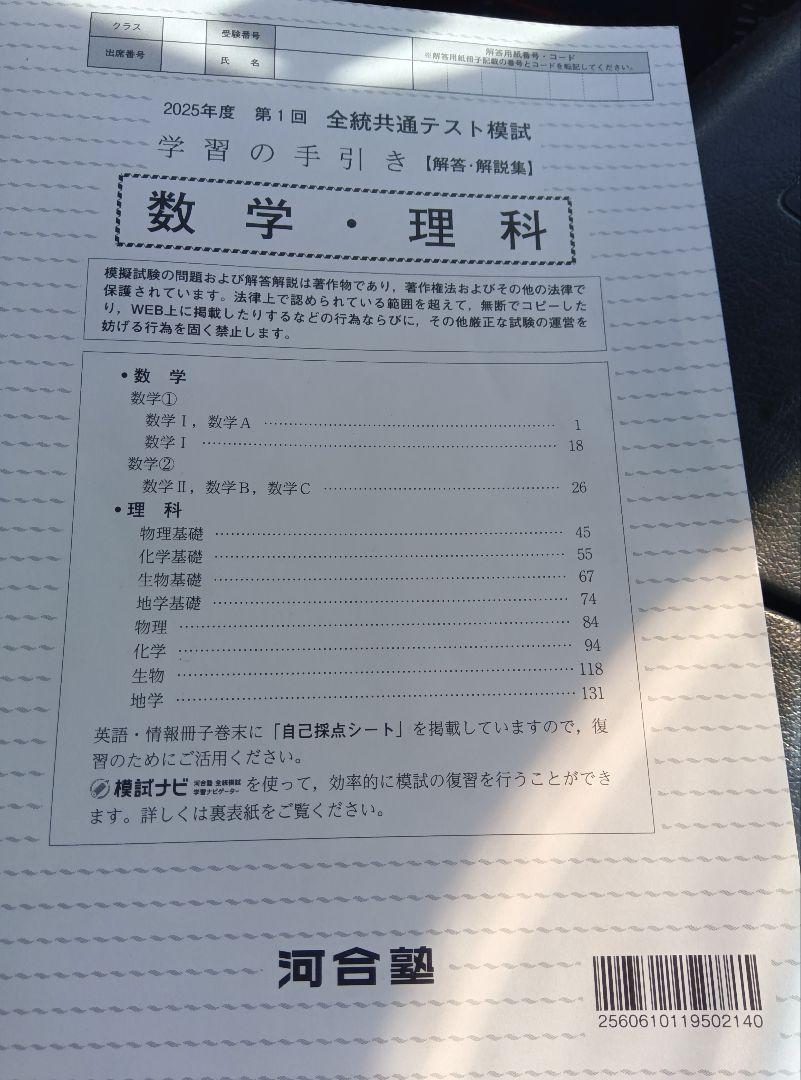 クラス
受験番号
解答用紙番号・コード
※解答用紙冊子記載の番号とコードを転記してください。
出席番号
氏 名
2025年度 第1回 全統共通テスト模試
学習の手引き【解答・解説集】
数学・理科
模擬試験の問題および解答解説は著作物であり，著作権法およびその他の法律で
保護されています。法律上で認められている範囲を超えて，無断でコピーした
り，WEB上に掲載したりするなどの行為ならびに，その他厳正な試験の運営を
妨げる行為を固く禁止します。
・数 学
数学①
数学Ⅰ，数学A ………… 1
数学Ⅰ ………… 18
数学②
数学Ⅱ，数学B，数学C ………… 26
・理 科
物理基礎 ………… 45
化学基礎 ………… 55
生物基礎 ………… 67
地学基礎 ………… 74
物理 ………… 84
化学 ………… 94
生物 ………… 118
地学 ………… 131
英語・情報冊子巻末に「自己採点シート」を掲載していますので，復
習のためにご活用ください。
模試ナビ 河合塾 全統模試 学習ナビゲーター を使って，効率的に模試の復習を行うことができ
ます。詳しくは裏表紙をご覧ください。
河合塾
2560610119502140